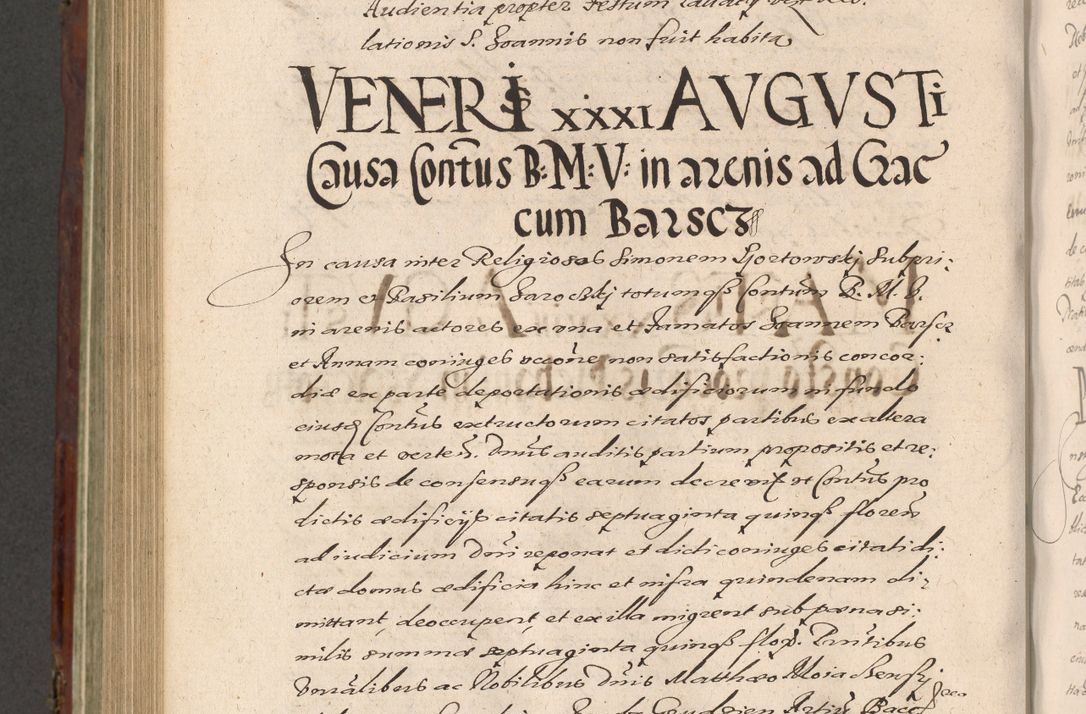 Audientia propter Festum
lationis S. Joannis non fuit habita
VENERIS XXXI AVGVSTi
Causa Contus B: M: V: in arenis ad Crac
cum Barscz
In causa inter Religiosos Simonem Gortowskj Subpri:
orem et Basilium totumqs Contum B. M. V.
in arenis actores ex una et Famatos Joannem Barscz
et Annam coniuges roone non satisfactionis concor:
diæ ex parte deportationis ædificiorum in fundo
eiusq Contus extructorum citatos partibus ex altera
mota et verten. Dnus auditis partium propositis et re:
sponsis de consensuqs earum decrevit ut Contus pro
dictis ædificijs citatis septuaginta quinqs floren
ad iudicium Dni reponat et dicti coniuges citati di:
ctæ domus ædificia hinc et infra quindenam di:
mittant, deoccupent, et ex illa migrent sub pæna si:
milis summæ septuaginta quinqs flor. Pntibus
Vnralibus ac Nobilibus Dnis Matthæo